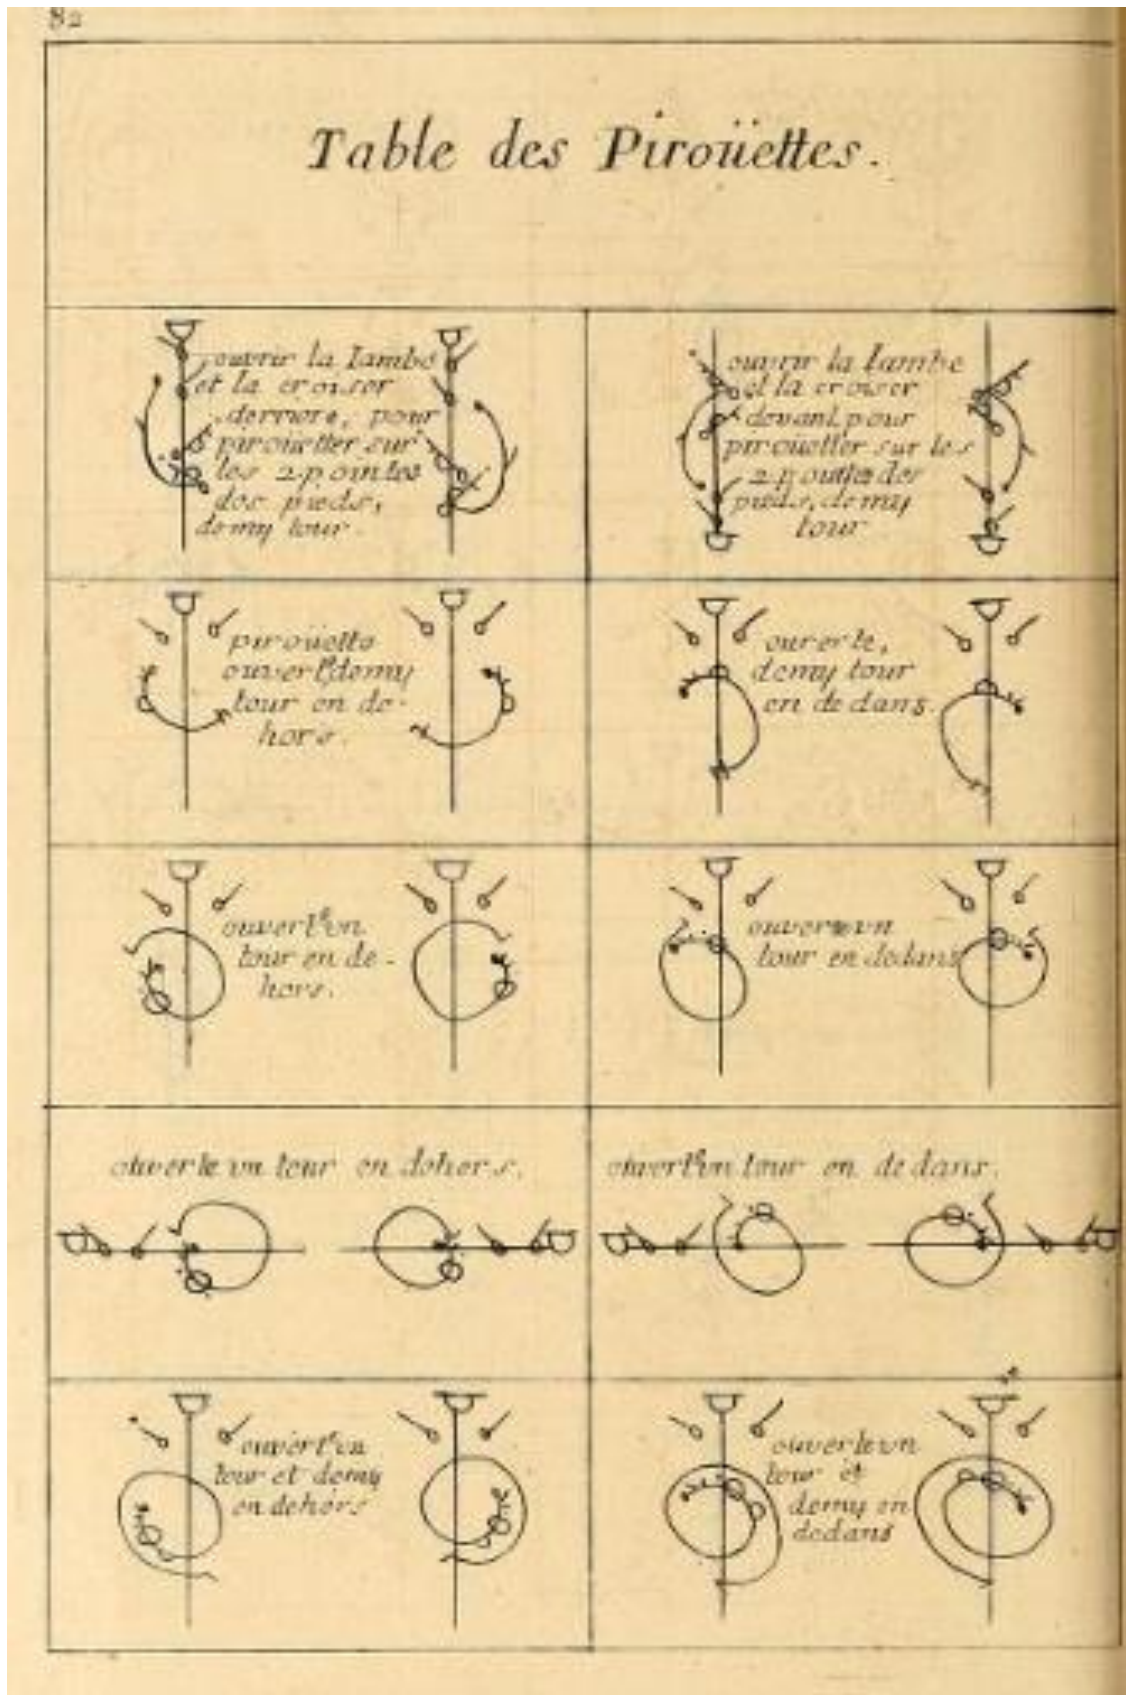 82
Table des Piroüettes.
ouvrir la Iambe
et la croiser
derriere, pour
piroüetter sur
les 2 pointes
des pieds,
demy tour.
ouvrir la Iambe
et la croiser
devant pour
piroüetter sur les
2 pointes des
pieds, demy
tour
piroüette
ouverte demy
tour en de-
hors.
ouverte,
demy tour
en dedans.
ouverte vn
tour en de-
hors.
ouverte vn
tour en dedans
ouverte vn tour en dehors.
ouverte vn tour en dedans.
ouverte vn
tour et demy
en dehors
ouverte vn
tour et
demy en
dedans